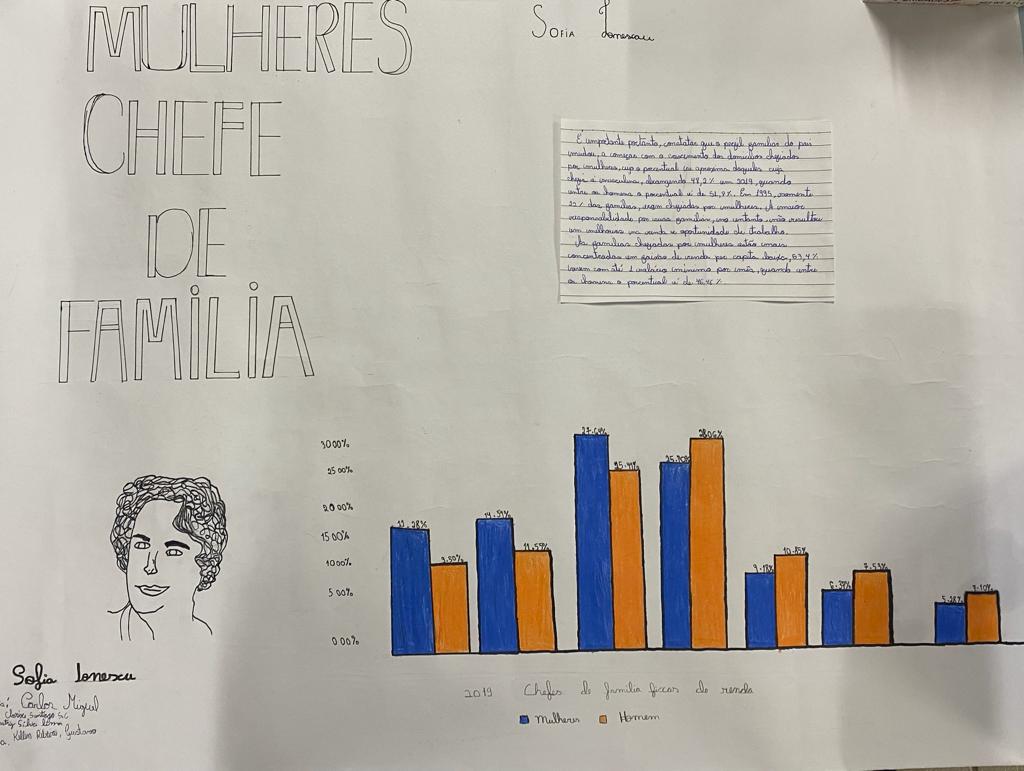 MULHERES
CHEFE
DE
FAMILIA
Sofia Ionescu
É importante portanto, constatar que o perfil familiar do país
mudou, a começar com o crescimento dos domicílios chefiados
por mulheres, cujo o porcentual se aproxima daqueles cuja
chefia é masculina, abrangendo 48,2% em 2019, quando
entre os homens o porcentual é de 51,8%. Em 1995, somente
25% das famílias, eram chefiadas por mulheres. A maior
responsabilidade por suas famílias, no entanto, não resultou
em melhores na renda e oportunidade de trabalho.
As famílias chefiadas por mulheres estão mais
concentradas em faixas de renda per capita baixa, 63,4%
vivem com até 1 salário mínimo por mês, quando entre
os homens o porcentual é de
30 00%
25 00%
20 00%
15 00%
10 00%
5 00%
0 00%
27.64%
28.06%
25.90%
14.51%
11.55%
9.18%
10.85%
7.53%
5.28%
Sofia Ionescu
Carlos Miguel
Silva Lima
Gustavo
2019 Chefes de família faixas de renda
Mulheres Homem